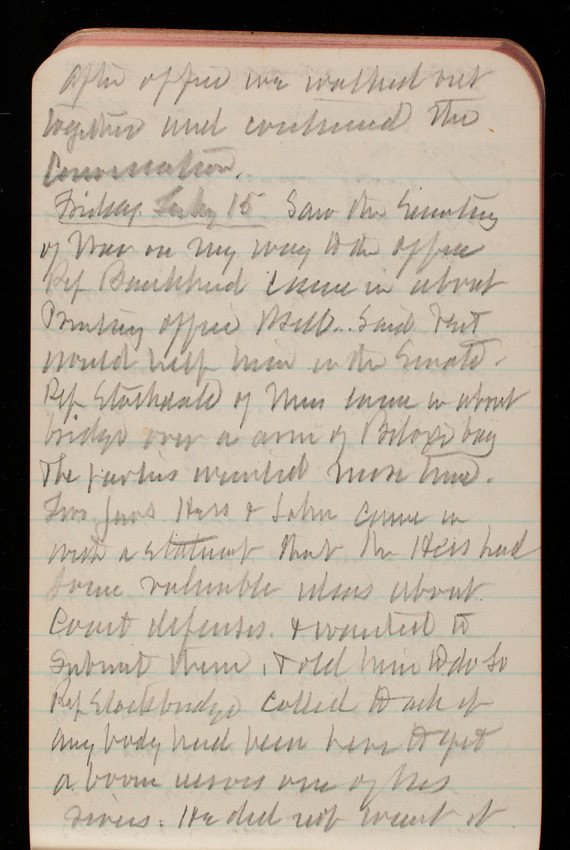 After office we walked out
together and continued the
Conversation.
Friday July 15 Saw the Secretary
of War on my way to the office
Rep Bankhead came in about
Printing office Bill.. Said that
would help him in the Senate.
Rep Stockdale of Miss came in about
bridge over a arm of Biloxi bay
The parties wanted more time.
Two Jews Hess & came in
with a statment that the Hess had
some valuable ideas about
Coast defenses. & wanted to
submit them. I told him to do so
Rep Stockbridge called to ask if
any body had been here to get
a boom across one of his
rivers. He did not want it